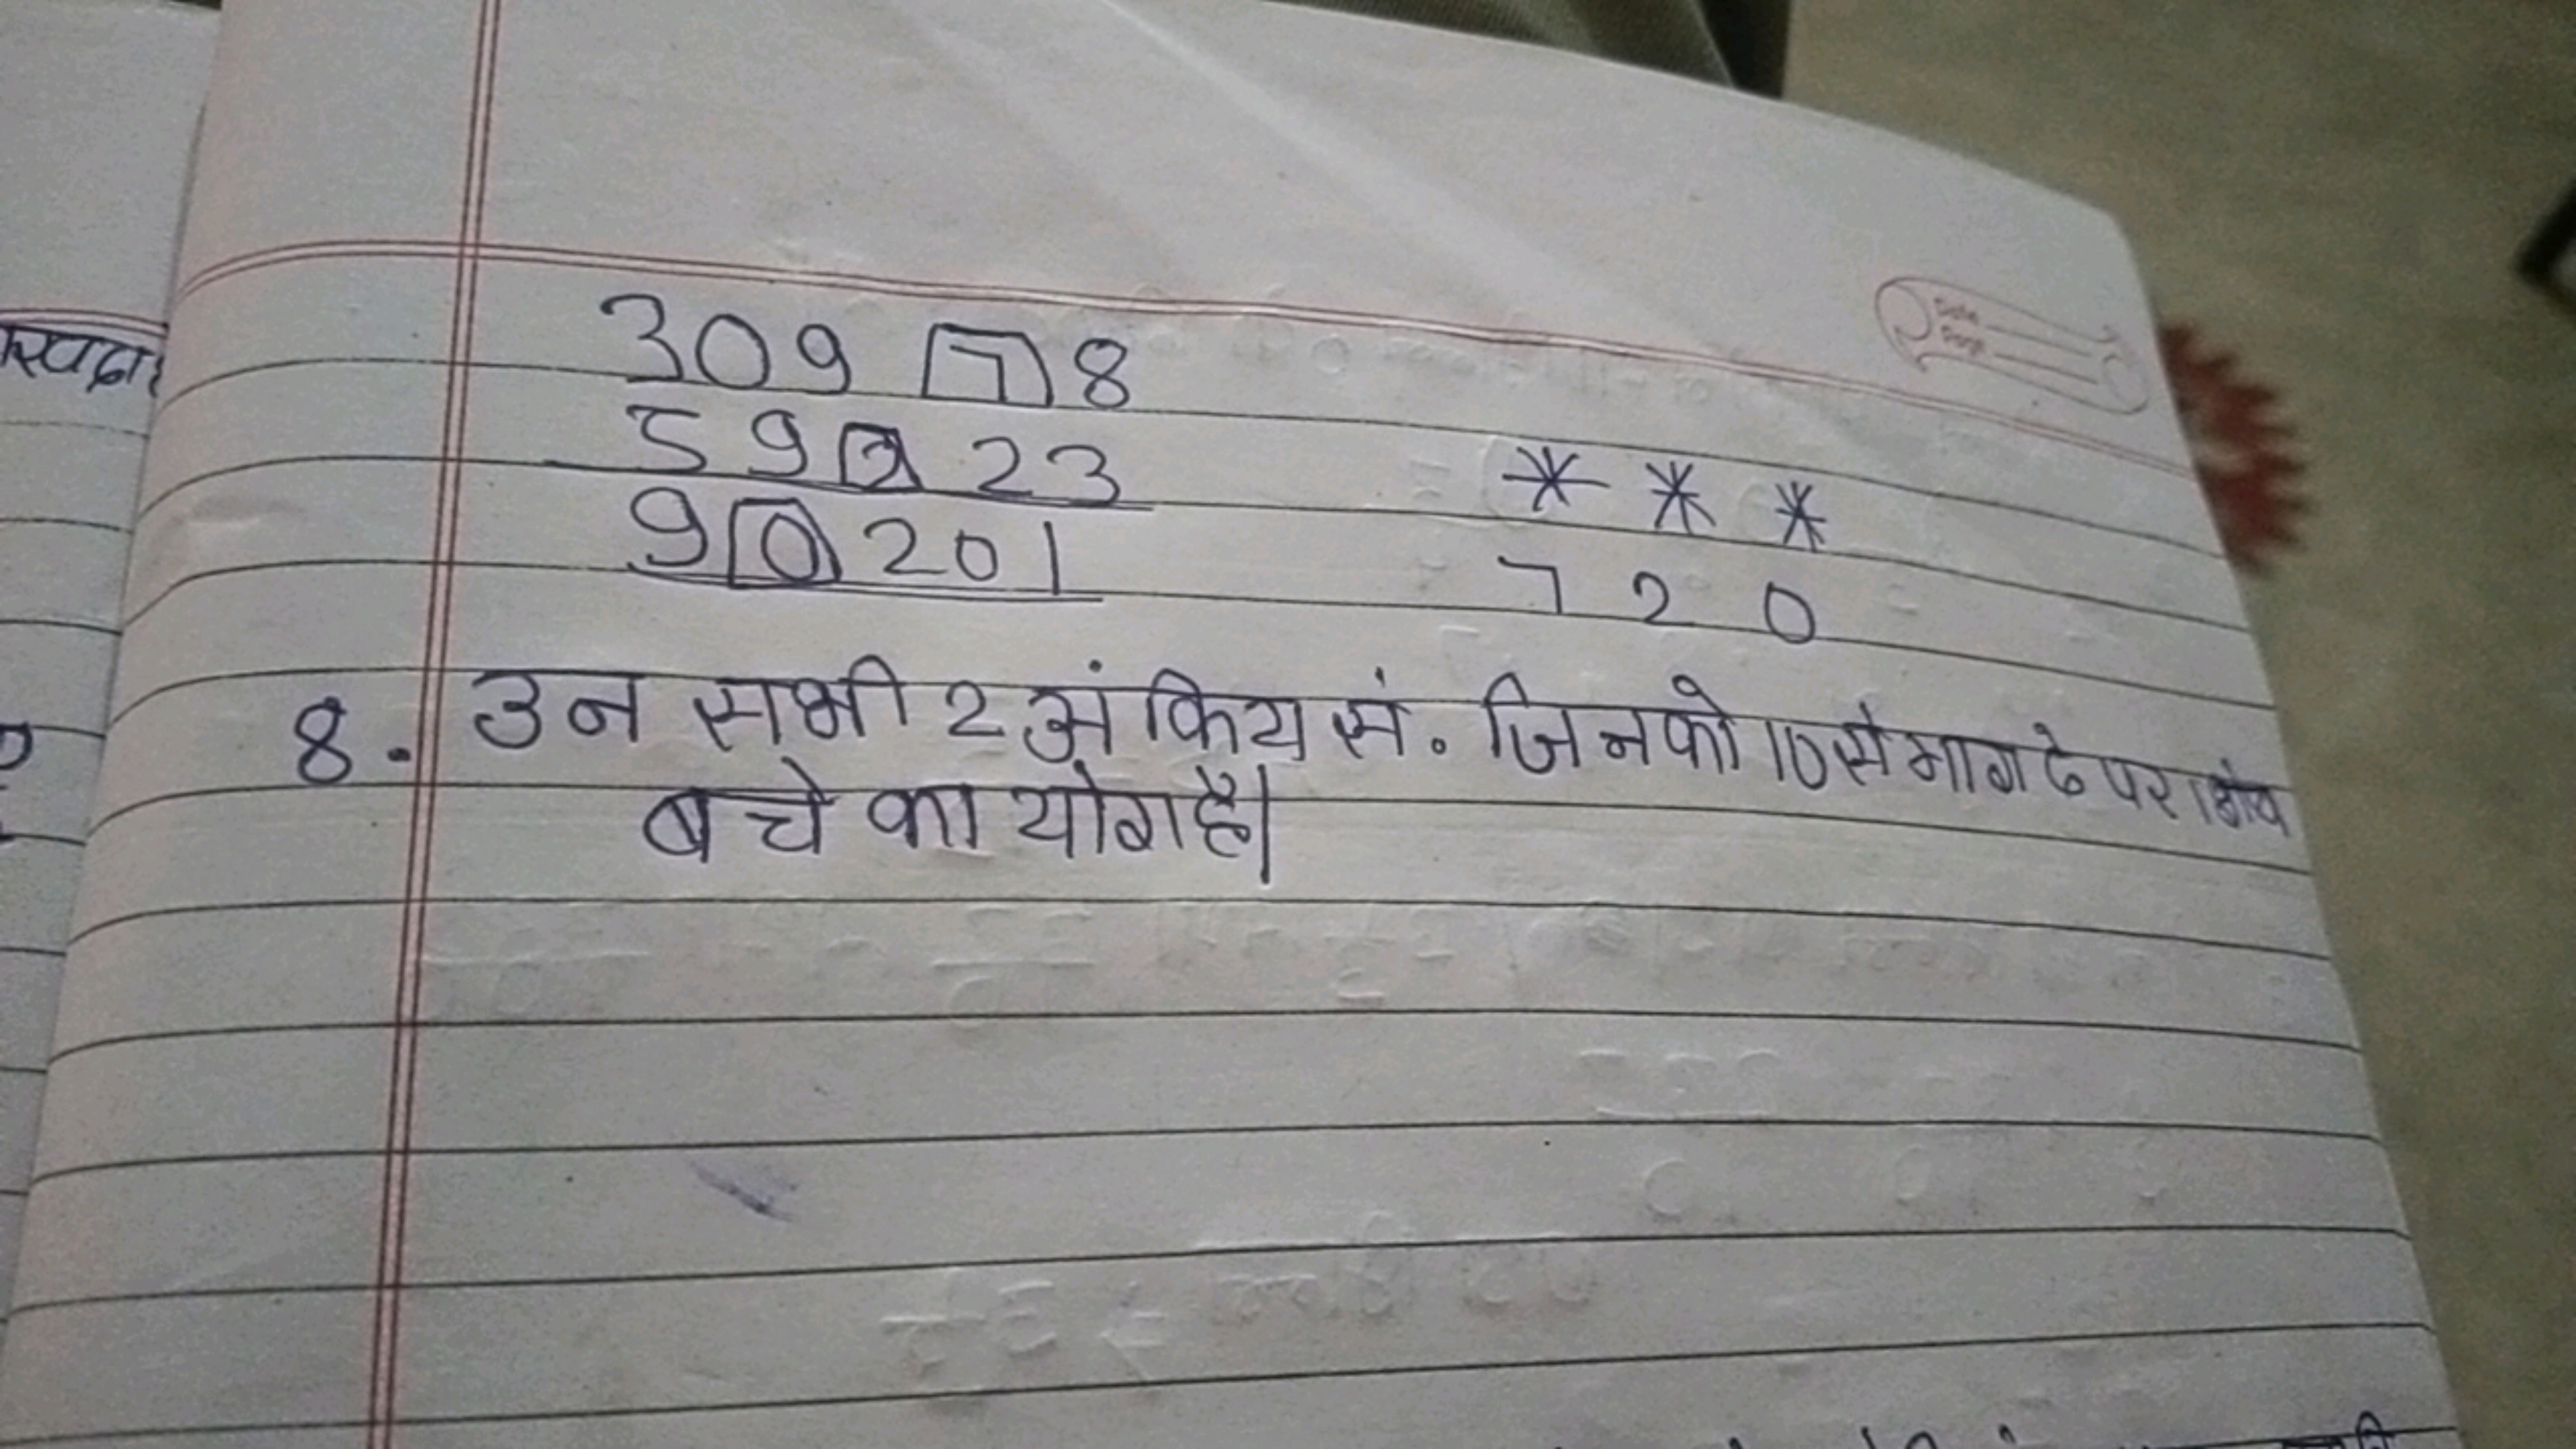 309 7 8
59 2 23
* * *
9 0 201
7 2 0
8. उन सभी 2 अंकिय सं. जिनको 10 से भाग दे पर 1 शेष
बचे का योग है।